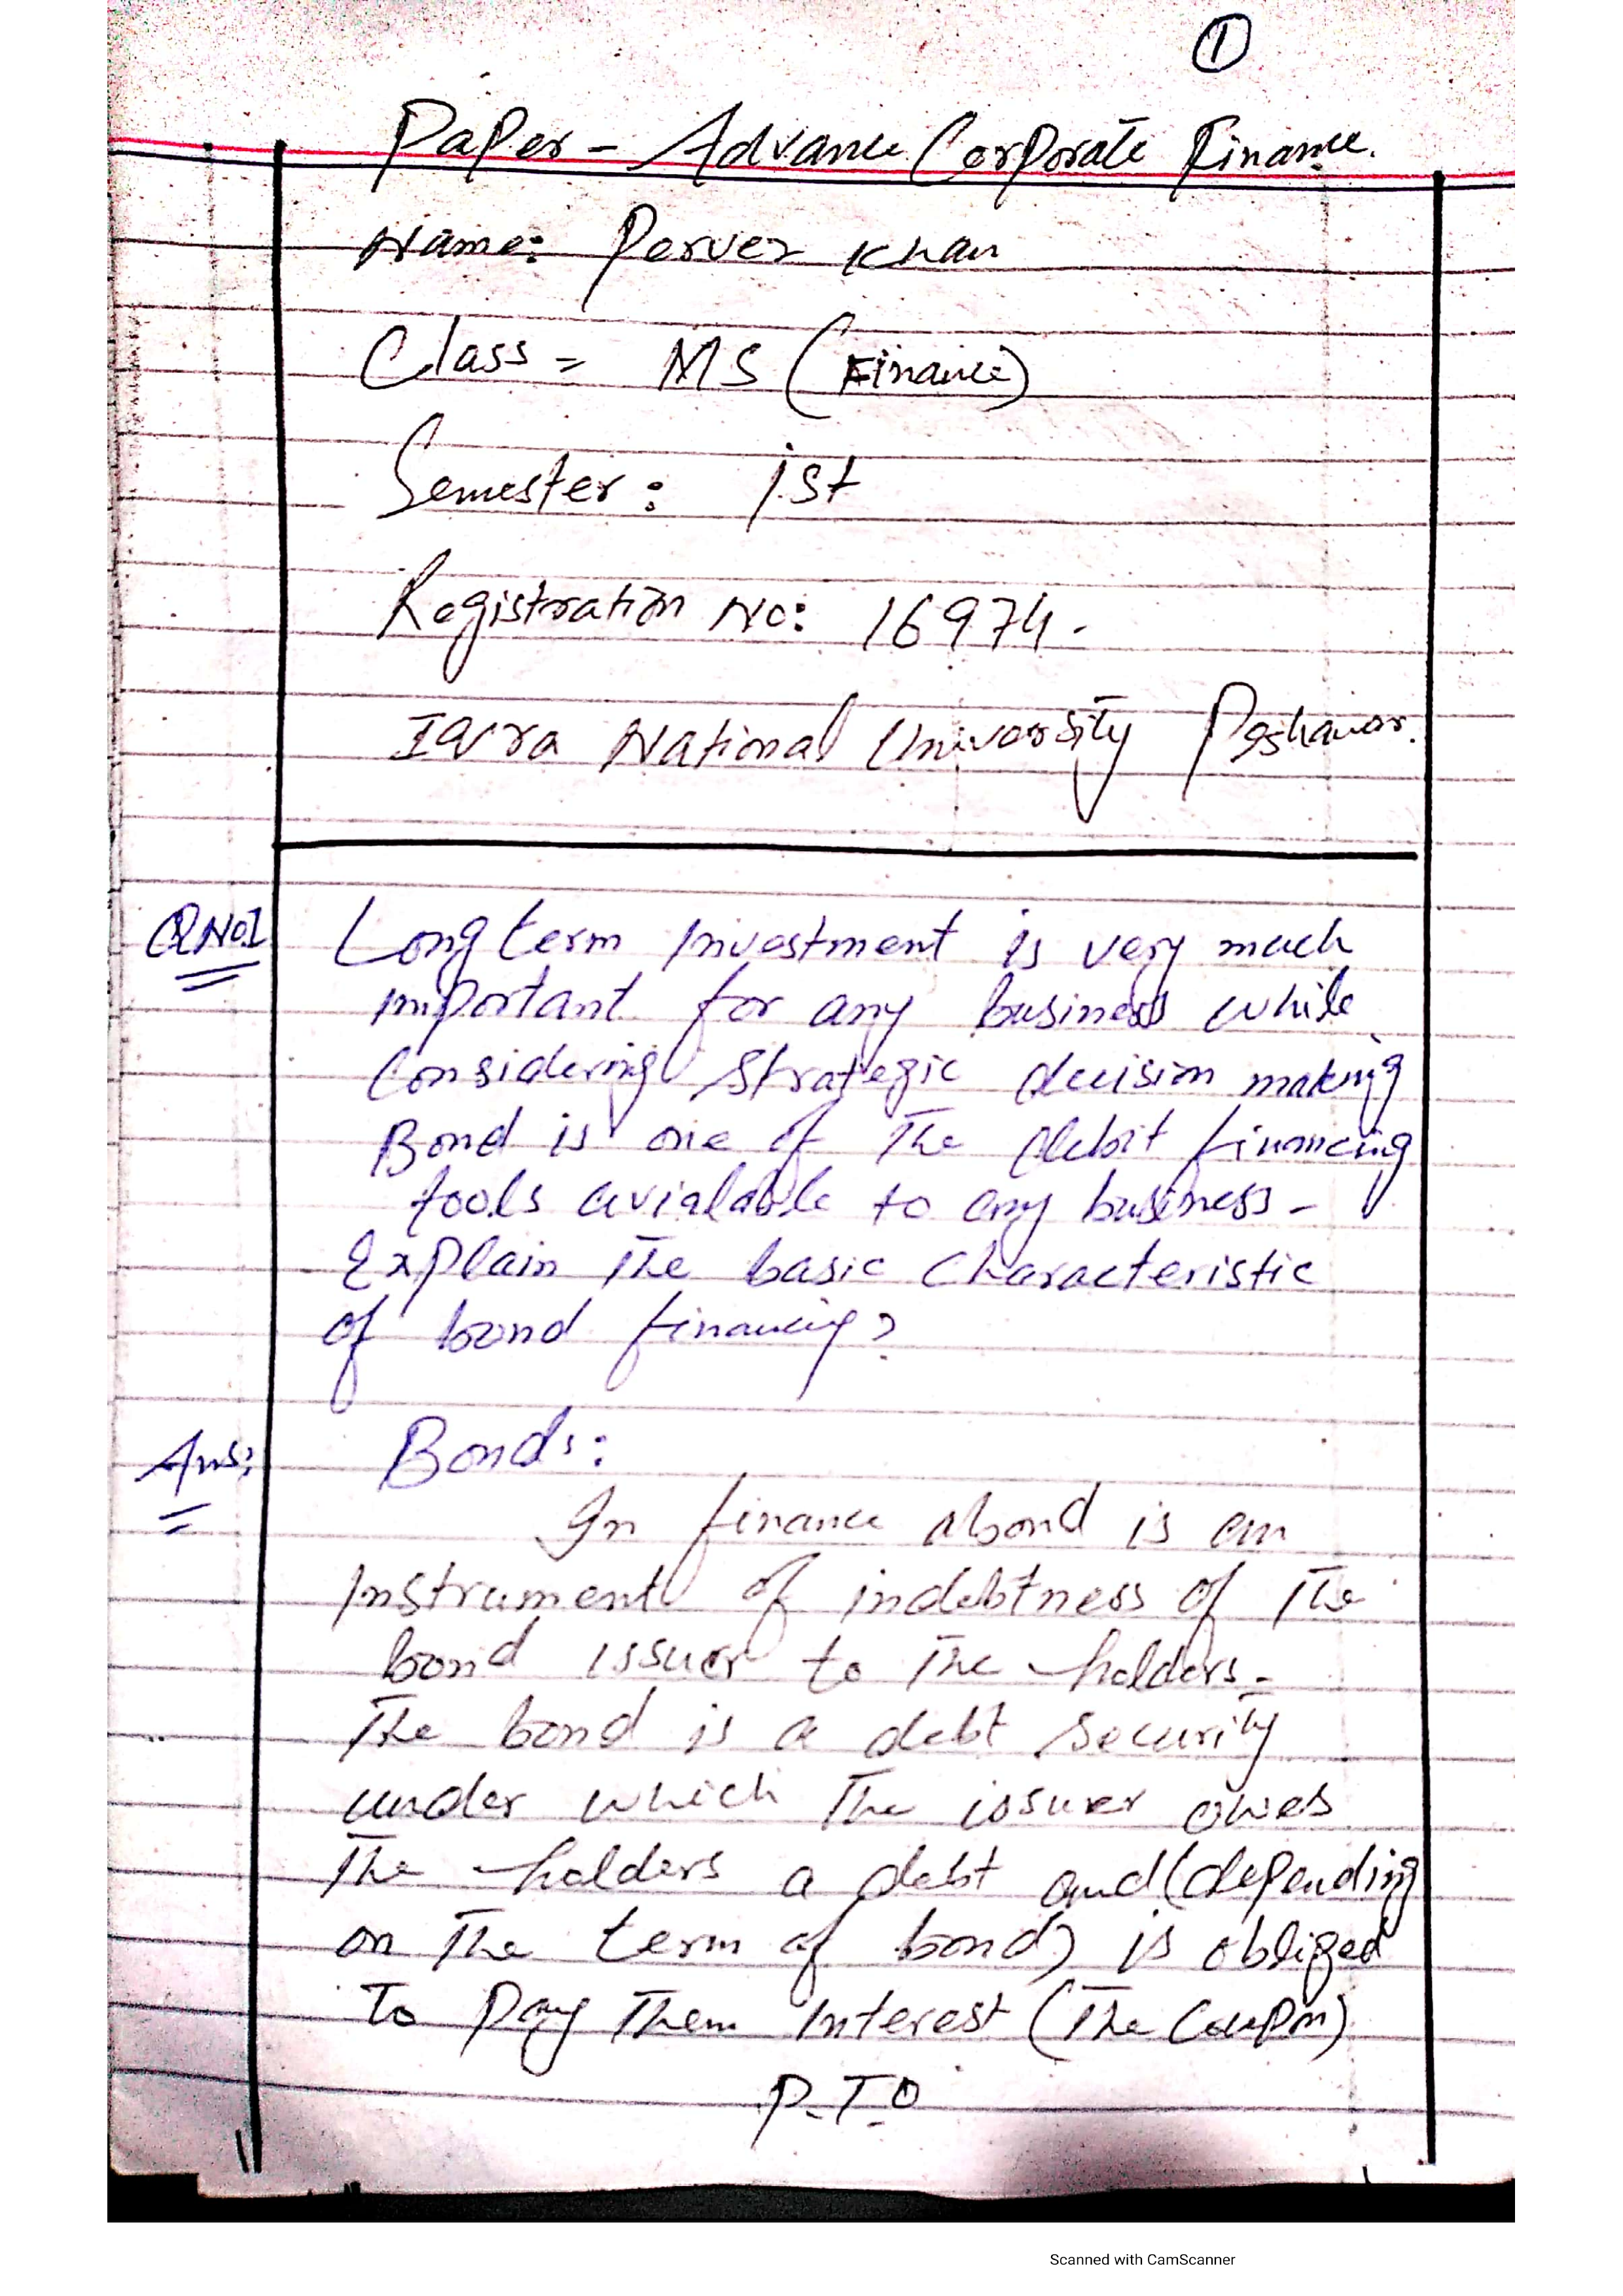 1
Paper - Advance Corporate Finance.
Name: Pervez Khan
Class = MS (Finance)
Semester: 1st
Registration No: 16974.
Iqra National University Peshawar.
QNo1 Long term Investment is very much
important for any business while
Considering Strategic decision making
Bond is one of The debit financing
tools avialable to any business -
Explain The basic Characteristic
of bond financing?
Ans: Bonds:
In finance a bond is an
Instrument of indebtness of The
bond issuer to The holders -
The bond is a debt security
under which The issuer owes
The holders a debt and (depending
on The term of bond) is obliged
To Pay Them Interest (The Coupon)
P.T.O
Scanned with CamScanner